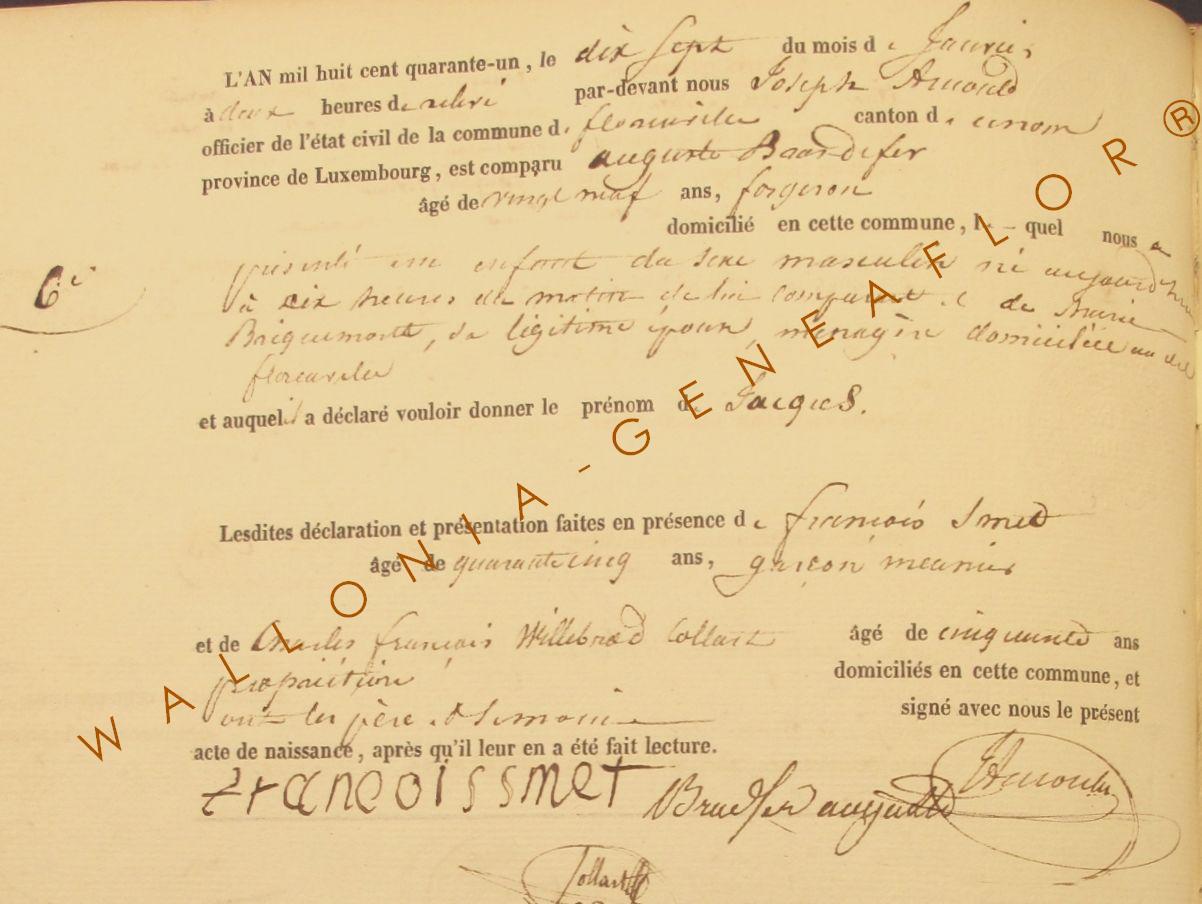 L'AN mil huit cent quarante-un, le dix sept du mois de Janvier
à deux heures de relevé par-devant nous Joseph Arnould
officier de l'état civil de la commune de florenville canton d
province de Luxembourg, est comparu auguste Baardifer
âgé de vingt neuf ans, forgeron
domicilié en cette commune, le quel nous a
6e
présenté un enfant du sexe masculin né aujourd'hui
à six heures du matin de lui comparant et de Marie
Briquemont, sa légitime épouse, ménagère domiciliée au dit
florenville
et auquel il a déclaré vouloir donner le prénom de Jacques.
Lesdites déclaration et présentation faites en présence de françois Smed
âgé de quarante cinq ans, garçon meunier
et de Charles françois Willebrod Collart âgé de cinquante ans
propriétaire domiciliés en cette commune, et
ont les père et témoins signé avec nous le présent
acte de naissance, après qu'il leur en a été fait lecture.
Francoissmet auguste JArnould
Collart
WALLONIA-GENEAFLOR®